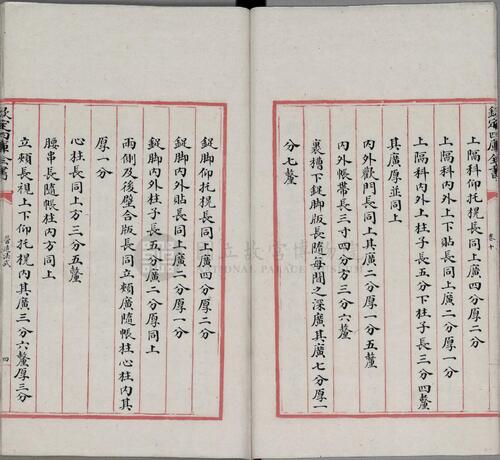 欽定四庫全書
卷十
上隔科仰托榥長同上廣四分厚二分
上隔科内外上下貼長同上廣二分厚一分
上隔科内外上柱子長五分下柱子長三分四釐
其廣厚並同上
内外歡門長同上其廣二分厚一分五釐
内外帳帶長三寸四分方三分六釐
裏槽下鋜脚版長隨每間之深廣其廣七分厚一
分七釐
鋜脚仰托榥長同上廣四分厚二分
鋜脚内外貼長同上廣二分厚一分
鋜脚内外柱子長五分廣二分厚同上
兩側及後壁合版長同立頰廣隨帳柱心柱内其
厚一分
心柱長同上方三分五釐
腰串長隨帳柱内方同上
立頰長視上下仰托榥内其廣三分六釐厚三分
欽定四庫全書
營造法式
四
國立故宮博物院
NATIONAL PALACE MUSEUM